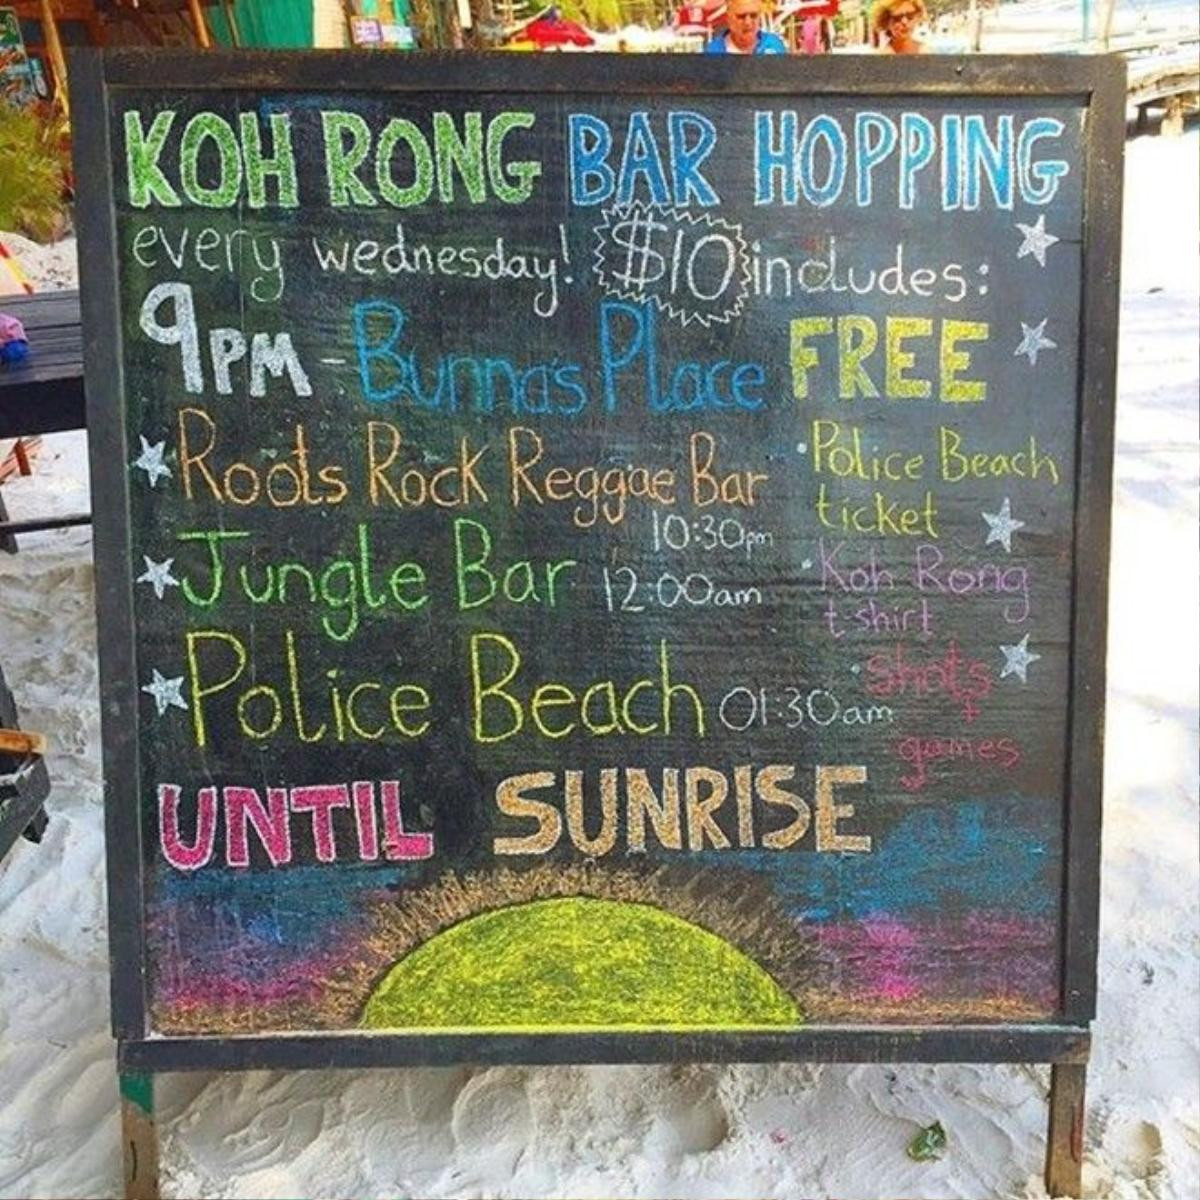 KOH RONG BAR HOPPING
every wednesday! $10 includes:
9PM - Bunna's Place FREE
Roots Rock Reggae Bar
10:30pm
• Police Beach
ticket
Jungle Bar 12:00am
• Koh Rong
t-shirt
Police Beach 01:30am
• shots
+
games
UNTIL SUNRISE